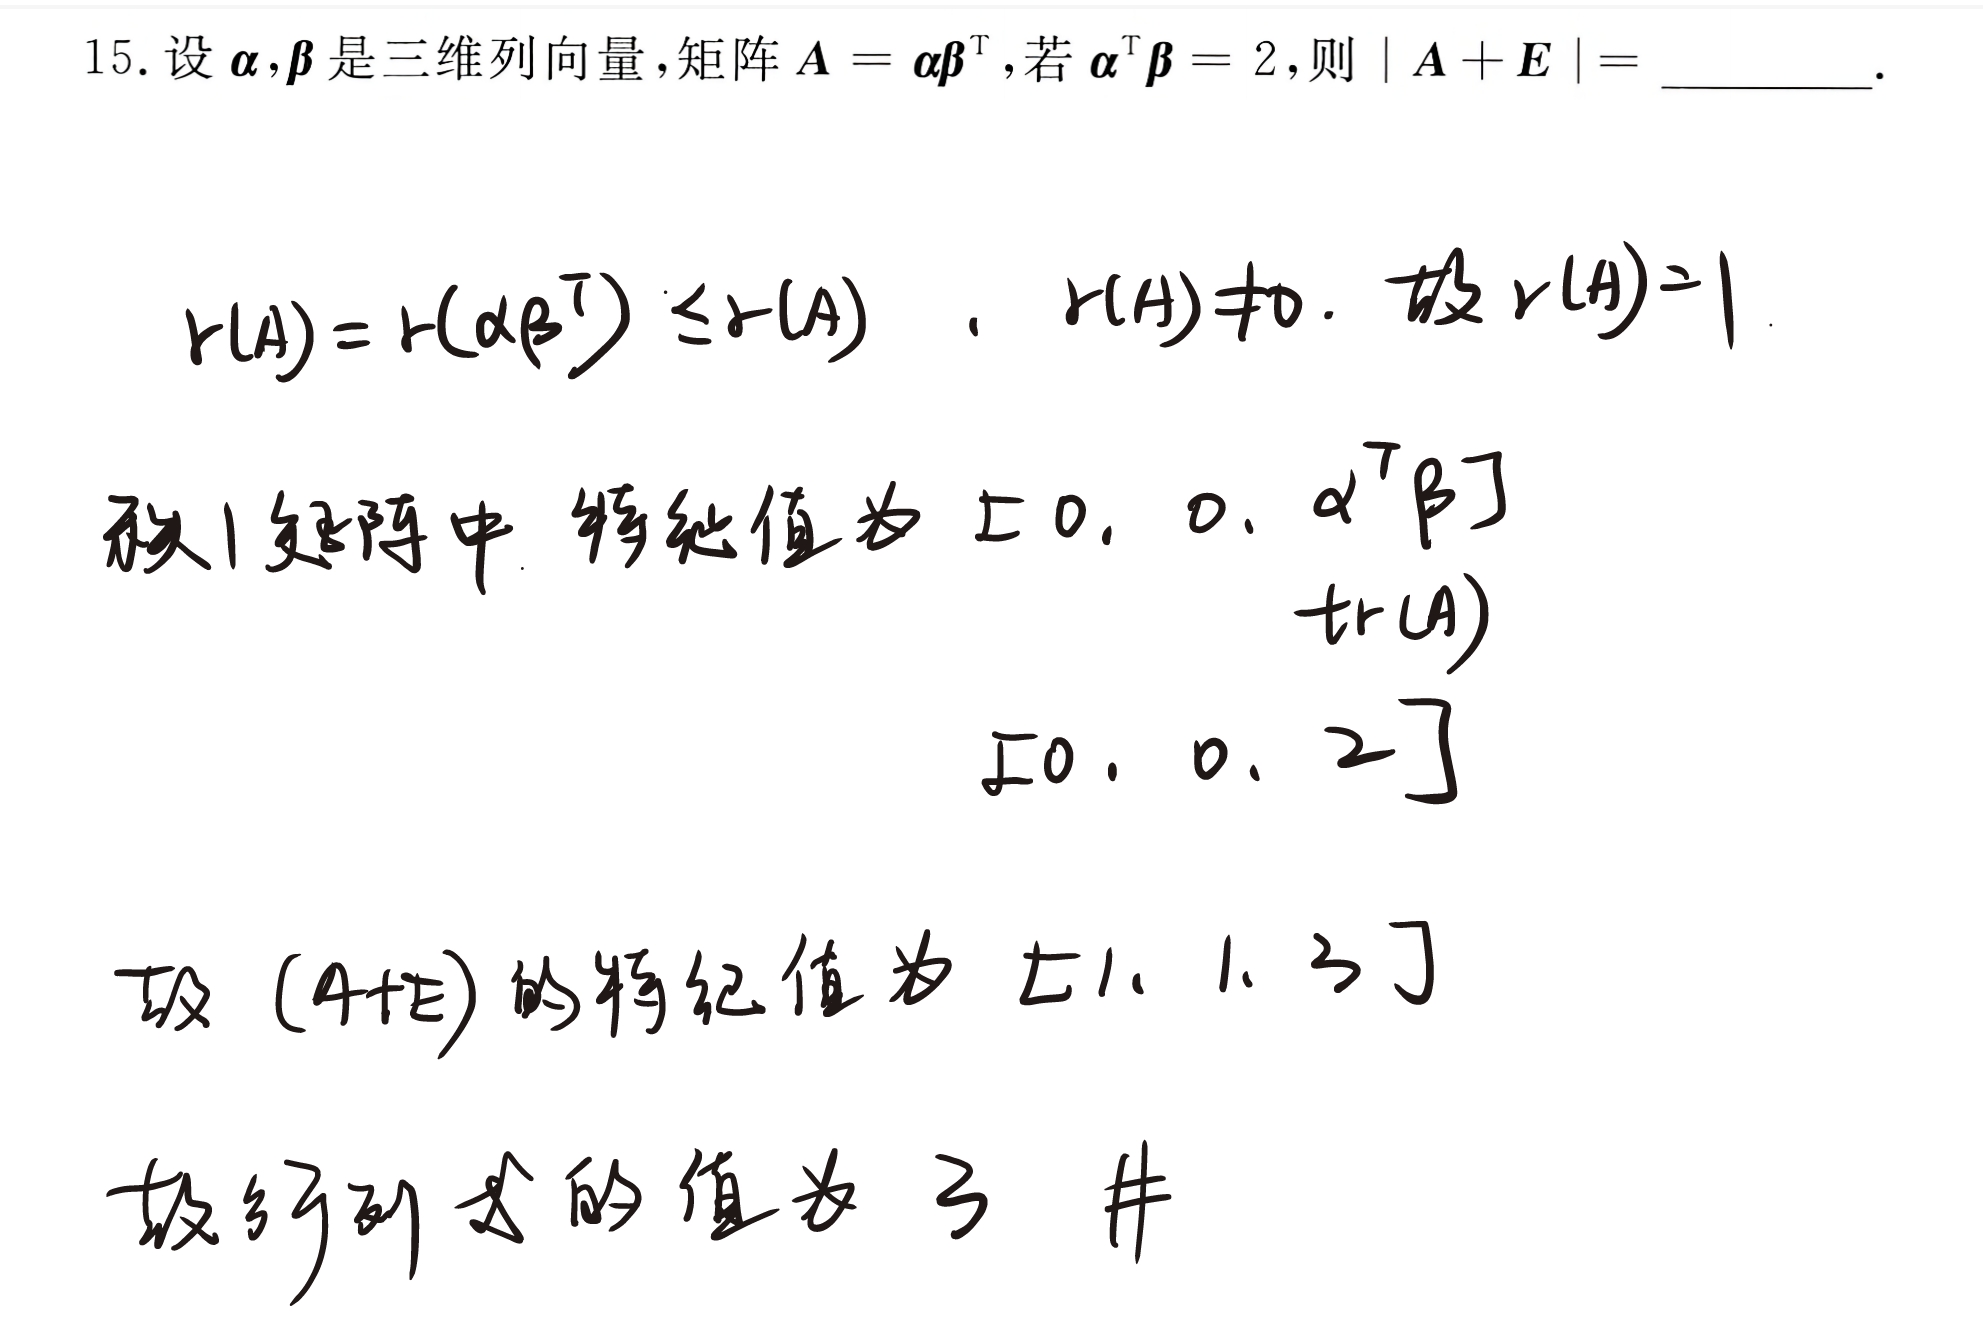 15. 设 α,β 是三维列向量,矩阵 A = αβᵀ,若 αᵀβ = 2,则 | A + E | = ______.
r(A) = r(αβᵀ) ≤ r(A) , r(A)≠0. 故 r(A)=1.
秩1矩阵中. 特征值为 [0, 0, αᵀβ]
tr(A)
[0, 0, 2]
故 (A+E) 的特征值为 [1, 1, 3]
故行列式的值为 3 #